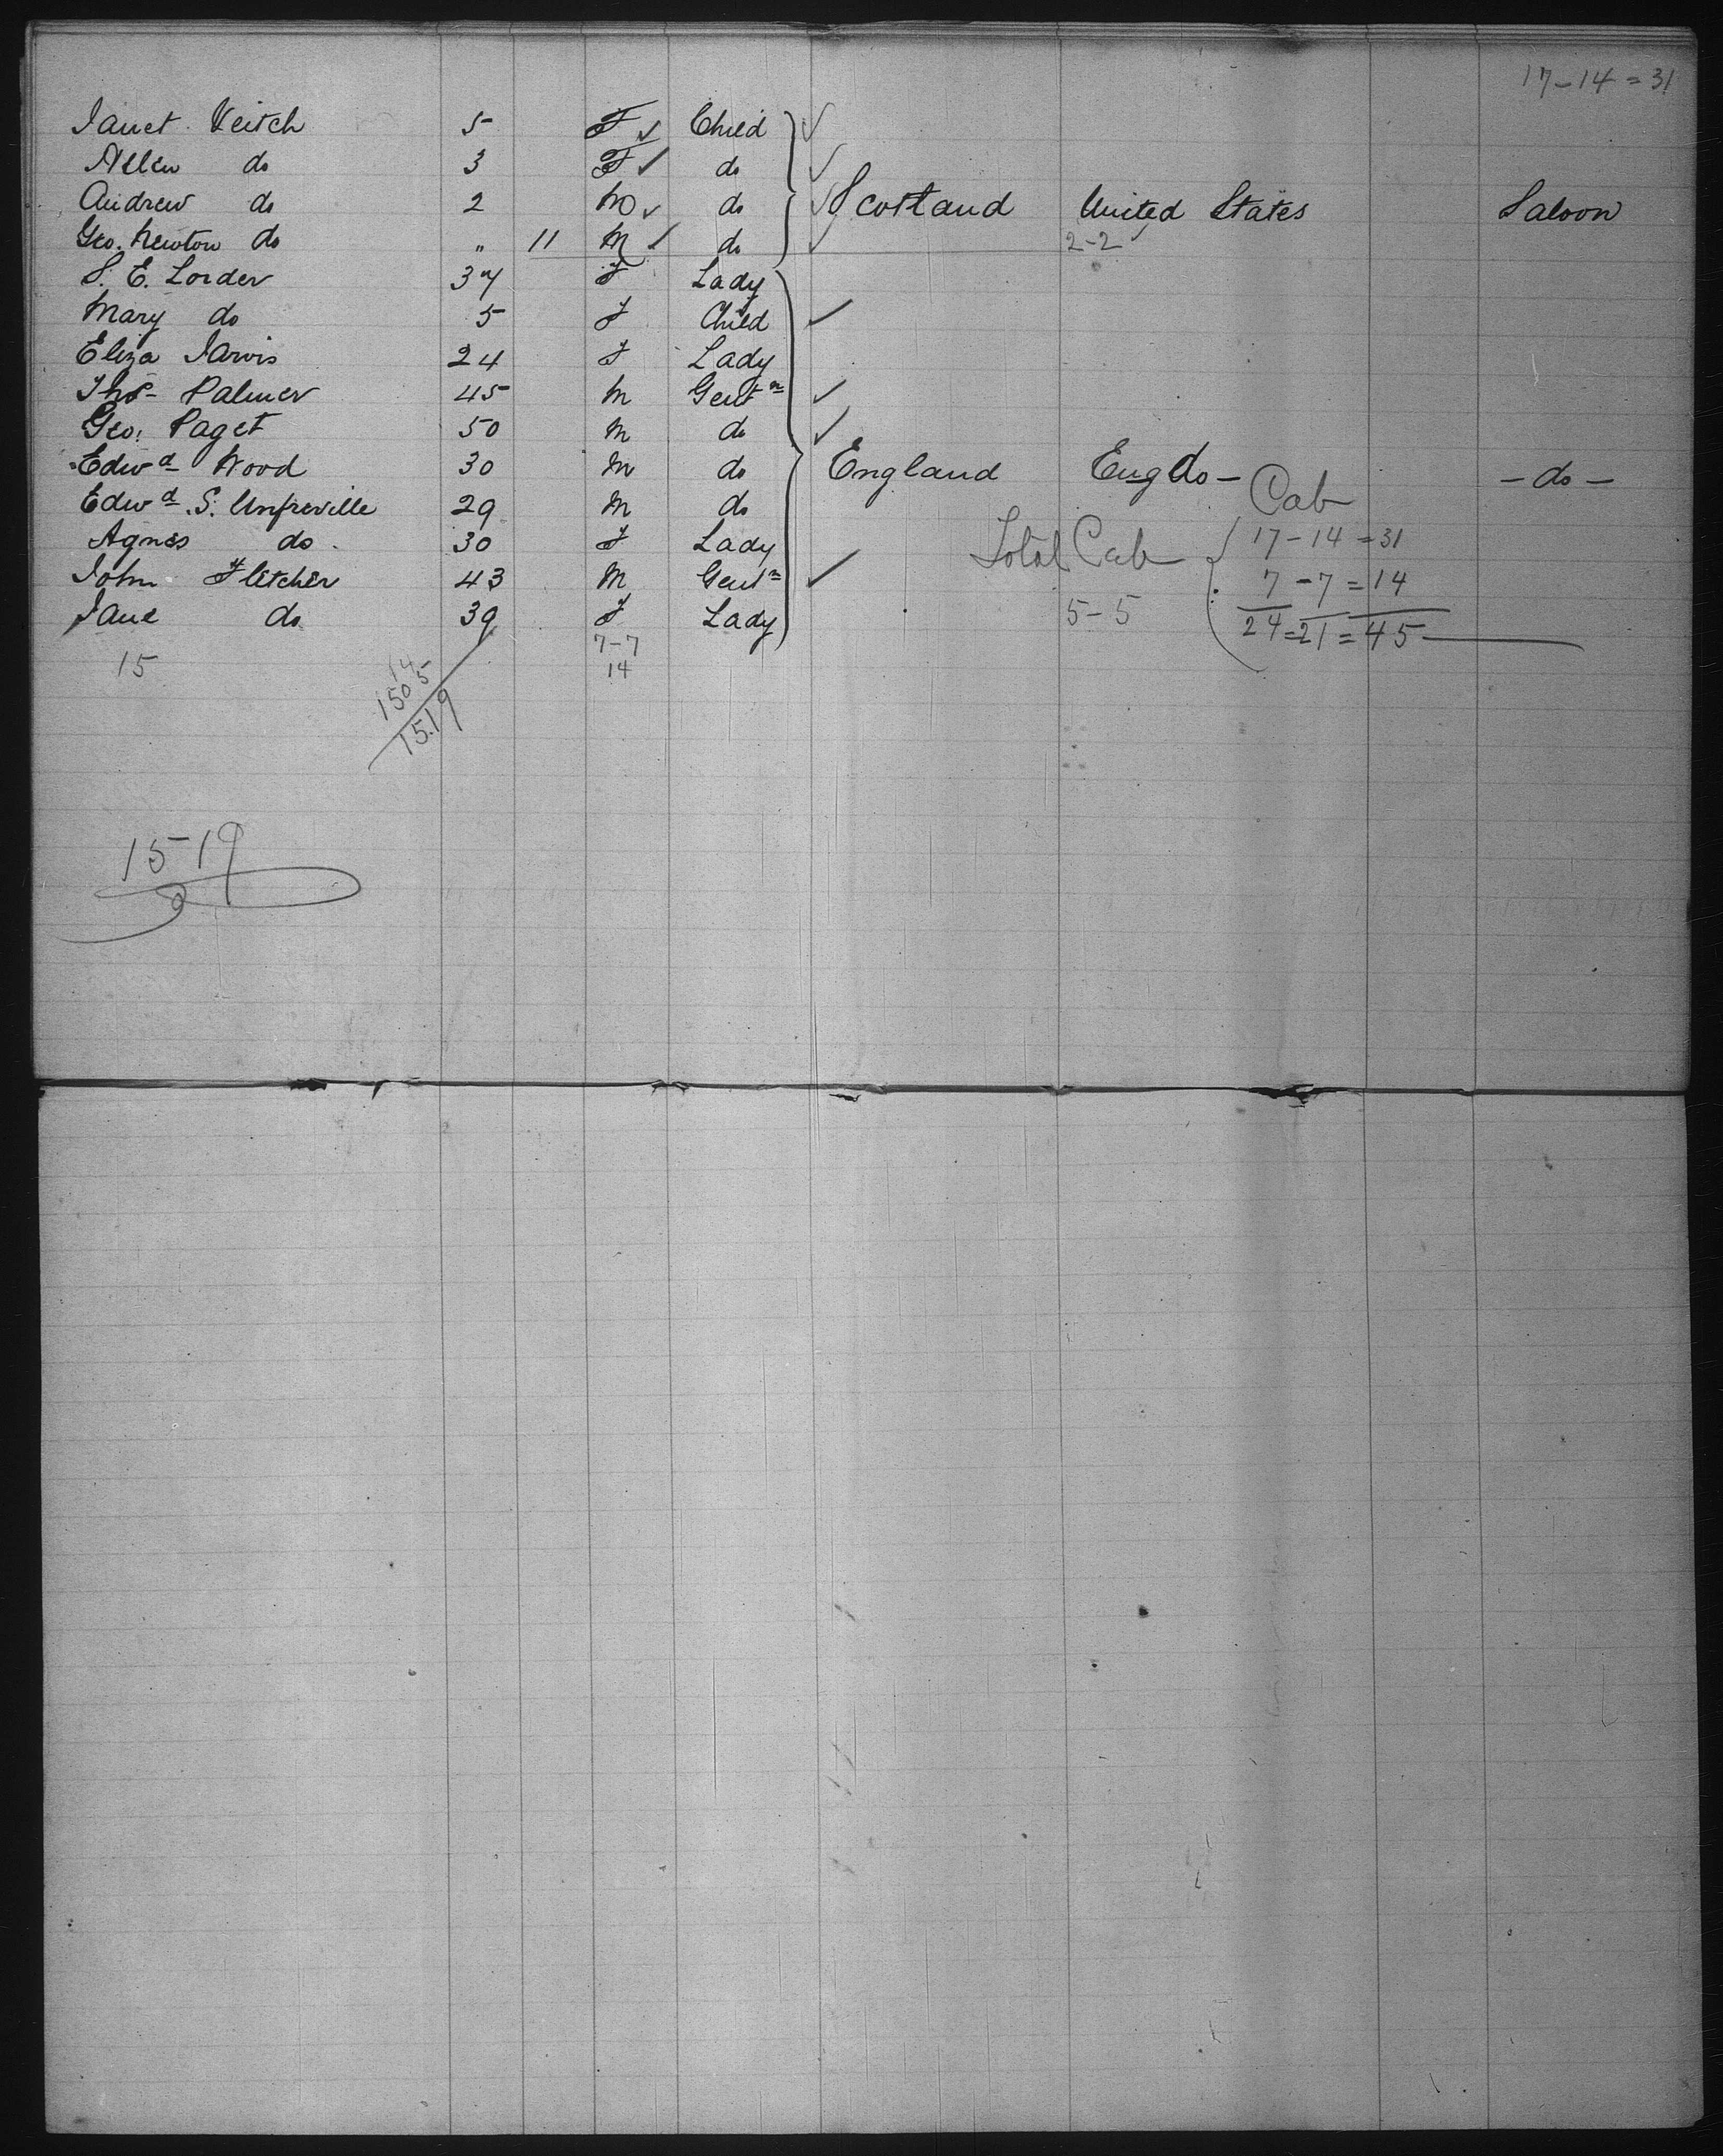 17-14=31
Janet Veitch 5 F ✓ Child ✓
Allen do 3 F ✓ do ✓
Andrew do 2 M ✓ do ✓ Scotland United States Saloon
Geo. Newton do " 11 M ✓ do ✓ 2-2 ✓
S. E. Lorder 37 F Lady
Mary do 5 F Child ✓
Eliza Jarvis 24 F Lady
Thos Palmer 45 M Gentn ✓
Geo: Paget 50 M do ✓
Edwd Wood 30 M do England Eng do - - do -
Edwd S. Umfreville 29 M do Cab
Agnes do 30 F Lady Total Cab 17-14=31
John Fletcher 43 M Gentn ✓ 7-7=14
Jane do 39 F Lady 5-5 24=21=45
7-7
15 14
14
1505
1519
1519